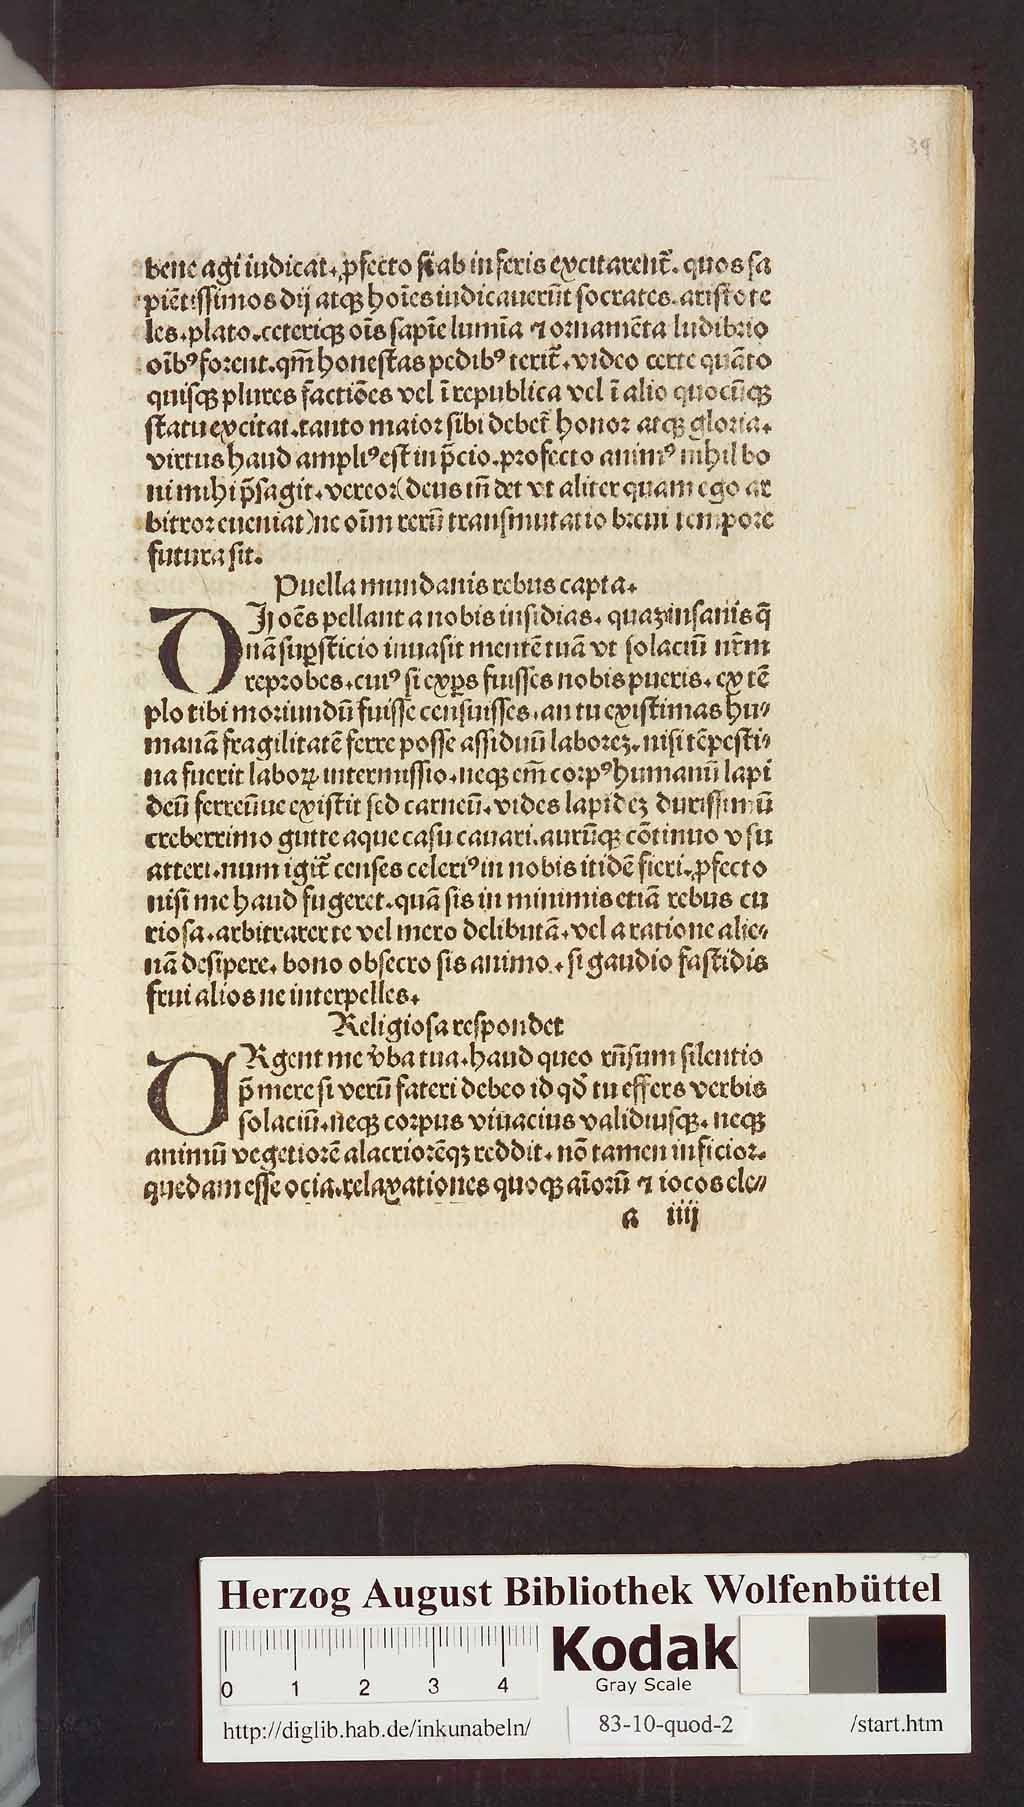 39
bene agi iudicat. ꝓfecto si ab inferis excitarent᷑. quos sa
piẽtissimos dij atqꝫ hoĩes iudicauerũt socrates. aristote
les. plato. ceteriqꝫ oĩs sapĩe lumĩa ⁊ ornamẽta ludibrio
oĩbꝰ forent. qm̃ honestas pedibꝰ terit᷑. video certe quãto
quisqꝫ plures factiões vel ĩ republica vel ĩ alio quocũqꝫ
statu excitat. tanto maior sibi debet᷑ honor atqꝫ gloria.
virtus haud ampliꝰ est in p̃cio. profecto animꝰ nihil bo
ni mihi p̃sagit. vereor (deus tñ det vt aliter quam ego ar
bitror eueniat) ne oĩm rerũ transmutatio breui tempore
futura sit.
Puella mundanis rebus capta.
DIj oẽs pellant a nobis insidias. quaꝫ insanis q̃
nã suꝑsticio inuasit mentẽ tuã vt solaciũ nr̃m
reprobes. cuiꝰ si exꝑs fuisses nobis pueris. ex tẽ
plo tibi moriundũ fuisse censuisses. an tu existimas hu⸗
manã fragilitatẽ ferre posse assiduũ laboreꝫ. nisi tẽpesti⸗
na fuerit laboꝝ intermissio. neqꝫ em̃ corpꝰ humanũ lapi
deũ ferreũue existit sed carneũ. vides lapideꝫ durissimũ
creberrimo gutte aque casu cauari. aurũqꝫ cõtinuo vsu
atteri. num igit᷑ censes celeriꝰ in nobis itidẽ fieri. ꝓfecto
nisi me haud fugeret. quã sis in minimis etiã rebus cu
riosa. arbitrarer te vel mero delibutã. vel a ratione alie⸗
nã desipere. bono obsecro sis animo. si gaudio fastidis
frui alios ne interpelles.
Religiosa respondet
ARgent me v̾ba tua. haud queo rñsum silentio
p̃mere si verũ fateri debeo id qd̾ tu effers verbis
solaciũ. neqꝫ corpus viuacius validiusqꝫ. neqꝫ
animũ vegetiorẽ alacriorẽqꝫ reddit. nõ tamen inficior.
quedam esse ocia. relaxationes quoqꝫ aĩorũ ⁊ iocos ele⸗
a iiij
Herzog August Bibliothek Wolfenbüttel
0 1 2 3 4
Kodak
Gray Scale
http://diglib.hab.de/inkunabeln/ 83-10-quod-2 /start.htm